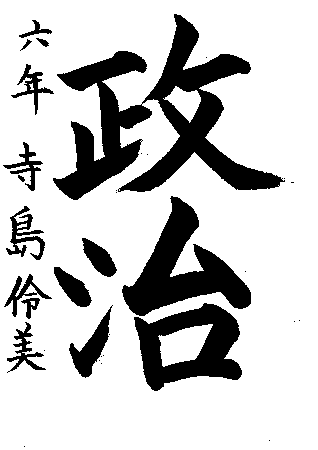 政治
六年 寺島伶美